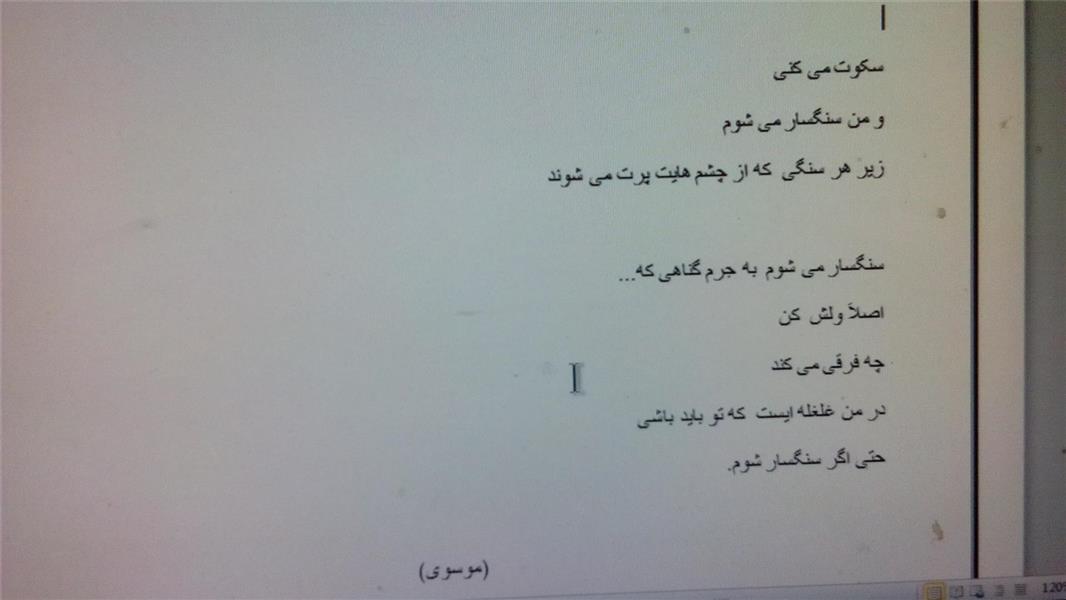 سکوت می کنی
و من سنگسار می شوم
زیر هر سنگی که از چشم هایت پرت می شوند
سنگسار می شوم به جرم گناهی که...
اصلاَ ولش کن
چه فرقی می کند
در من غلغله ایست که تو باید باشی
حتی اگر سنگسار شوم.
(موسوی)
120%